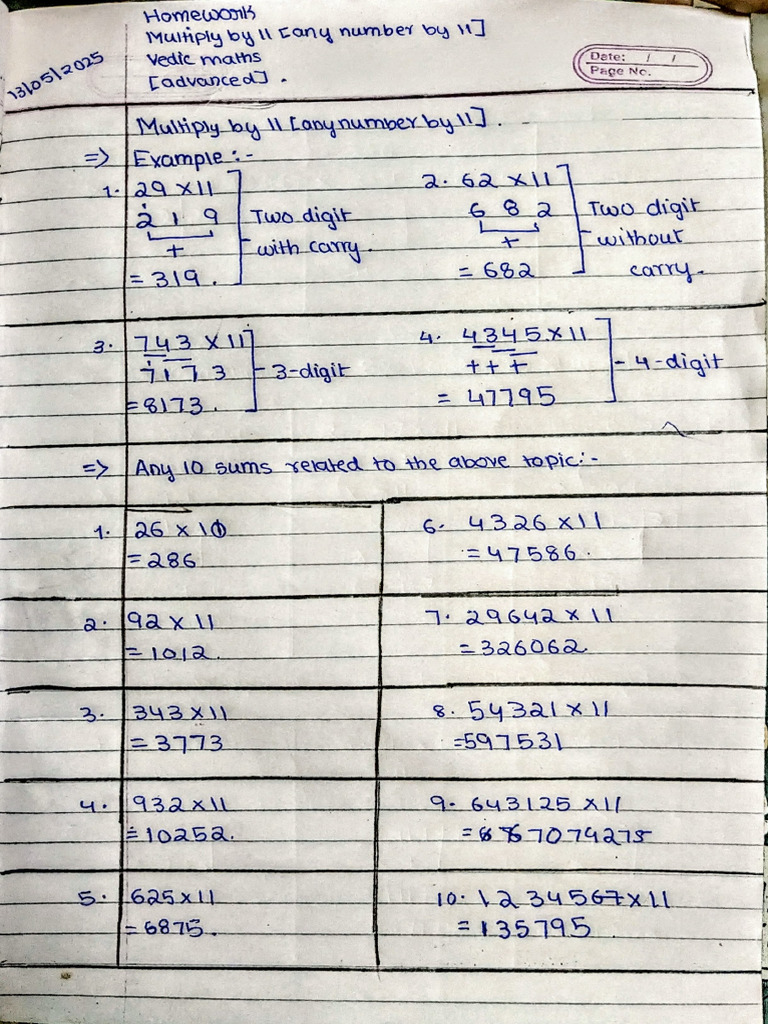 Homework
Multiply by 11 [any number by 11]
Vedic maths
[advanced].
13/05/2025
Date: / /
Page No.
Multiply by 11 [any number by 11].
=> Example:-
1. 29 x 11
2 1 9
+
= 319.
Two digit
with carry.
2. 62 x 11
6 8 2
+
= 682
Two digit
without
carry.
3. 743 x 11
7 1 7 3
= 8173.
3-digit
4. 4345 x 11
+ + +
= 47795
- 4-digit
=> Any 10 sums related to the above topic:-
1. 26 x 10
= 286
2. 92 x 11
= 1012.
3. 343 x 11
= 3773
4. 932 x 11
= 10252.
5. 625 x 11
= 6875.
6. 4326 x 11
= 47586.
7. 29642 x 11
= 326062.
8. 54321 x 11
= 597531
9. 643125 x 11
= 7074275
10. 1234567 x 11
= 135795